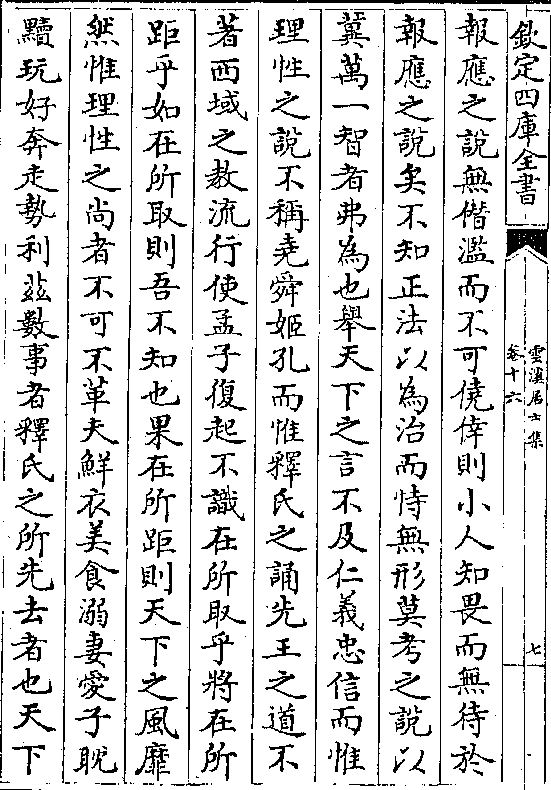 欽定四庫全書
雲溪居士集
卷十六
七
報應之說無僭濫而不可僥倖則小人知畏而無待於
報應之說矣不知正法以為治而恃無形莫考之說以
冀萬一智者弗為也舉天下之言不及仁義忠信而惟
理性之說不稱堯舜姬孔而惟釋氏之誦先王之道不
著西域之教流行使孟子復起不識在所取乎將在所
距乎如在所取則吾不知也果在所距則天下之風靡
然惟理性之尚者不可不革夫鮮衣美食溺妻愛子耽
黷玩好奔走勢利茲數事者釋氏之所先去者也天下